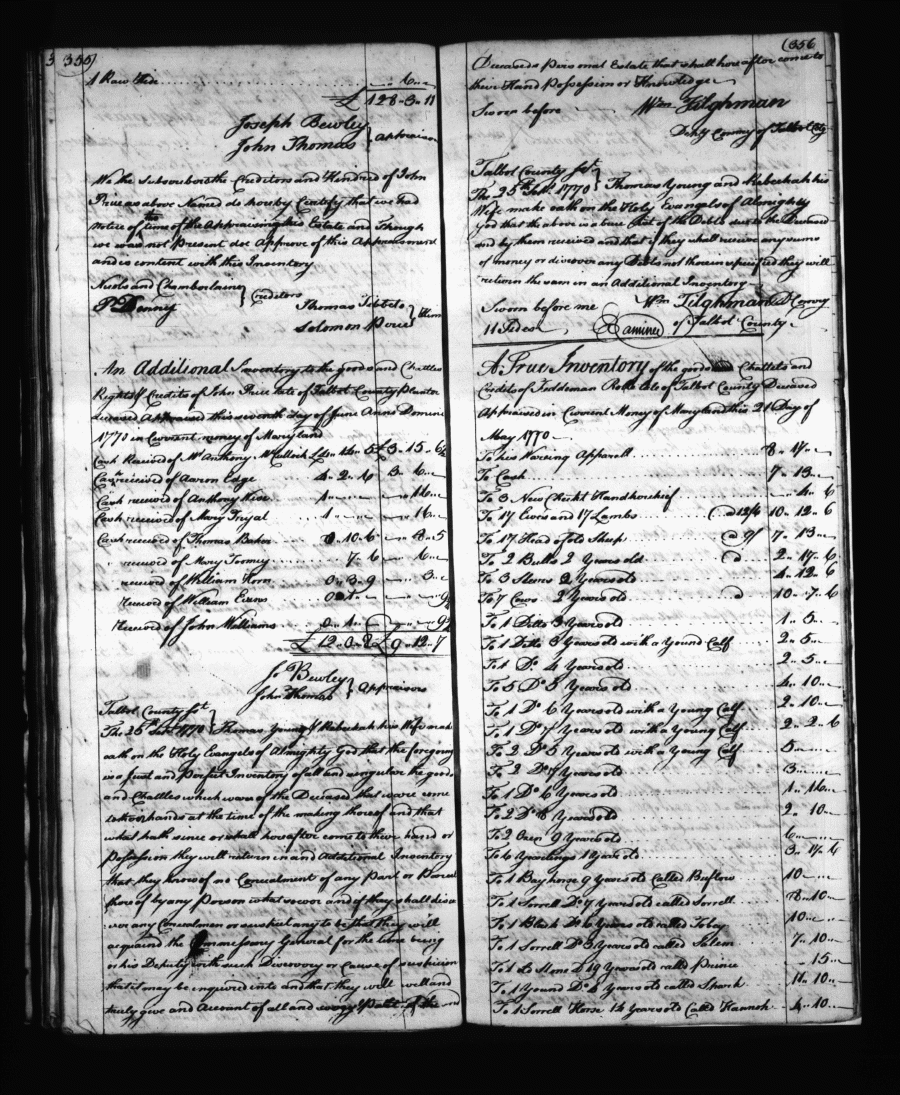 355)
1 Raw Hide ... 6
£ 128-3-11
Joseph Bewley
John Thomas } Appraisors
We the Subscribers the Creditors and Kindred of John
Price as above Named do hereby Certify that we had
Notice of the time of the Appraising his Estate and Though
we was not Present doe Approve of this Appraisment
and is content with this Inventory
Nichols and Chamberlaine } Creditors
P Denney
Thomas
Solomon Price } Kin
An Additional Inventory to the goods and Chattles
Rights & Credits of John Price late of Talbot County Planter
Deceased Appraised this seventh day of June Anno Domini
1770 in Current money of Maryland
Cash Received of Mr Anthony McCulloch 3 15 6½
Cash received of Aaron Edge 4 2 6 3 6
Cash received of Anthony Wise 1 16
Cash received of Mary Tryal 1 16
Cash received of Thomas Baker 0 10 6 8 5
received of Mary Toomey 7 6 6
received of William Horn 0 3 9 3
received of William Evans 0 1 9½
received of John Williams 0 1 9½
£ 12 0 2 £ 9 12 7
Jo Bewley
John Thomas } Appraisors
Talbot County Sct
The 25th 1770 } Thomas Young & Rebeckah his Wife make
oath on the Holy Evangels of Almighty God that the foregoing
is a just and Perfect Inventory of all and singular the goods
and Chattles which were of the Deceased that is are come
to their hands at the time of the making thereof and that
what hath since or shall hereafter come to their hands or
Possession they will return in and Additional Inventory
that they know of no Concealment of any Part or Parcel
thereof by any Person whatsoever and if they shall disco
ver any Concealmen or suspect any to be that they will
acquaind the Commessary General for the time being
or his Deputy with such Discovery or Cause of suspicion
that it may be enquired into and that they will well and
truly give and Account of all and every Part of the
(356
Deceaseds Personal Estate that shall hereafter come to
their Hand Possession or Knowledge
Sworn before Wm Tilghman
Depty Commy of Talbot Cty
Talbot County Sct
The 25th 1770 } Thomas Young and Rebeckah his
Wife make oath on the Holy Evangels of Almighty
God that the above is a true List of the Debts due to the Deceased
and by them received and that if they shall receive any sums
of money or discover any Debts not therein specified they will
return the sam in an Additional Inventory
Sworn before me Wm Tilghman D Commy
11 Sides Examined of Talbot County
A True Inventory of the goods Chattels and
Credits of Tuddeman late of Talbot County Deceased
Appraised in Current Money of Maryland this 21 Day of
May 1770
To his Waring Apparell 8 17
To Cash 7 13
To 3 New Checkt Handkerchief 4 6
To 17 Ewes and 17 Lambs @ 12/6 10 12 6
To 17 Head of old Sheep @ 9/ 7 13
To 2 Bulls 2 Years old @ 2 17 6
To 3 Steers 2 Years old 4 12 6
To 7 Cows 2 Years old 10 7 6
To 1 Ditto 3 Years old 1 5
To 1 Ditto 3 Years old with a Yound Calf 2 5
To 1 Do 4 Years old 2 5
To 5 Do 5 Years old 4 10
To 1 Do 6 Years old with a Young Calf 2 10
To 1 Do 7 Years old with a Young Calf 2 2 6
To 2 Do 5 Years old with a Young Calf 5
To 2 Do 7 Years old 3
To 1 Do 6 Years old 1 16
To 2 Do 8 Years old 2 10
To 2 Oxen 9 Years old 6
To 6 Yearlings 1 Year old 3 17 4
To 1 Bay horse 9 Years old Called Buflow 10
To 1 Sorrell Do 7 Years old called Sorrell 8 10
To 1 Black Do 6 Years old called Tobey 10
To 1 Sorrell Do 3 Years old called Salem 7 10
To 1 Do 19 Years old called Prince 15
To 1 Yound Do 8 Years old called 11 10
To 1 Sorrell Horse 14 Years old Called Hannah 4 10